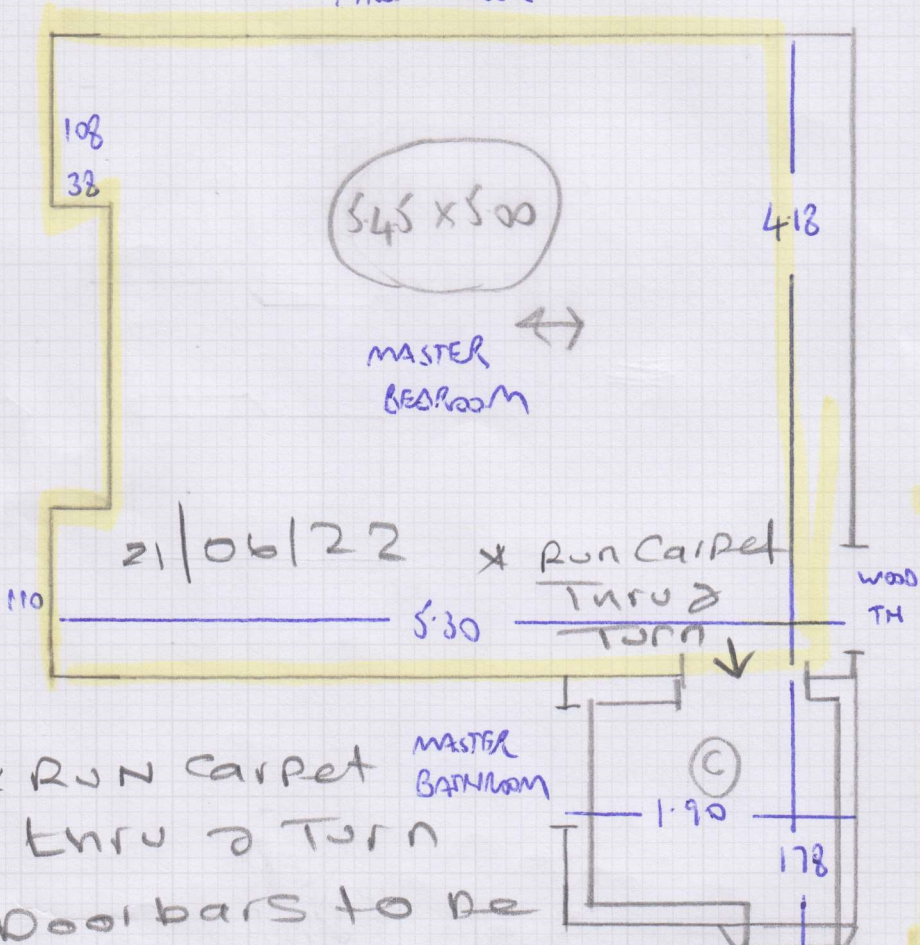 108
38
5.45 x 5.00
4.18
MASTER
BEDROOM
21/06/22
* Run Carpet
Thru &
Turn
110
5.30
WOOD
TH
MASTER
BATHROOM
C
1.90
178
RUN Carpet
thru & Turn
Doorbars to be